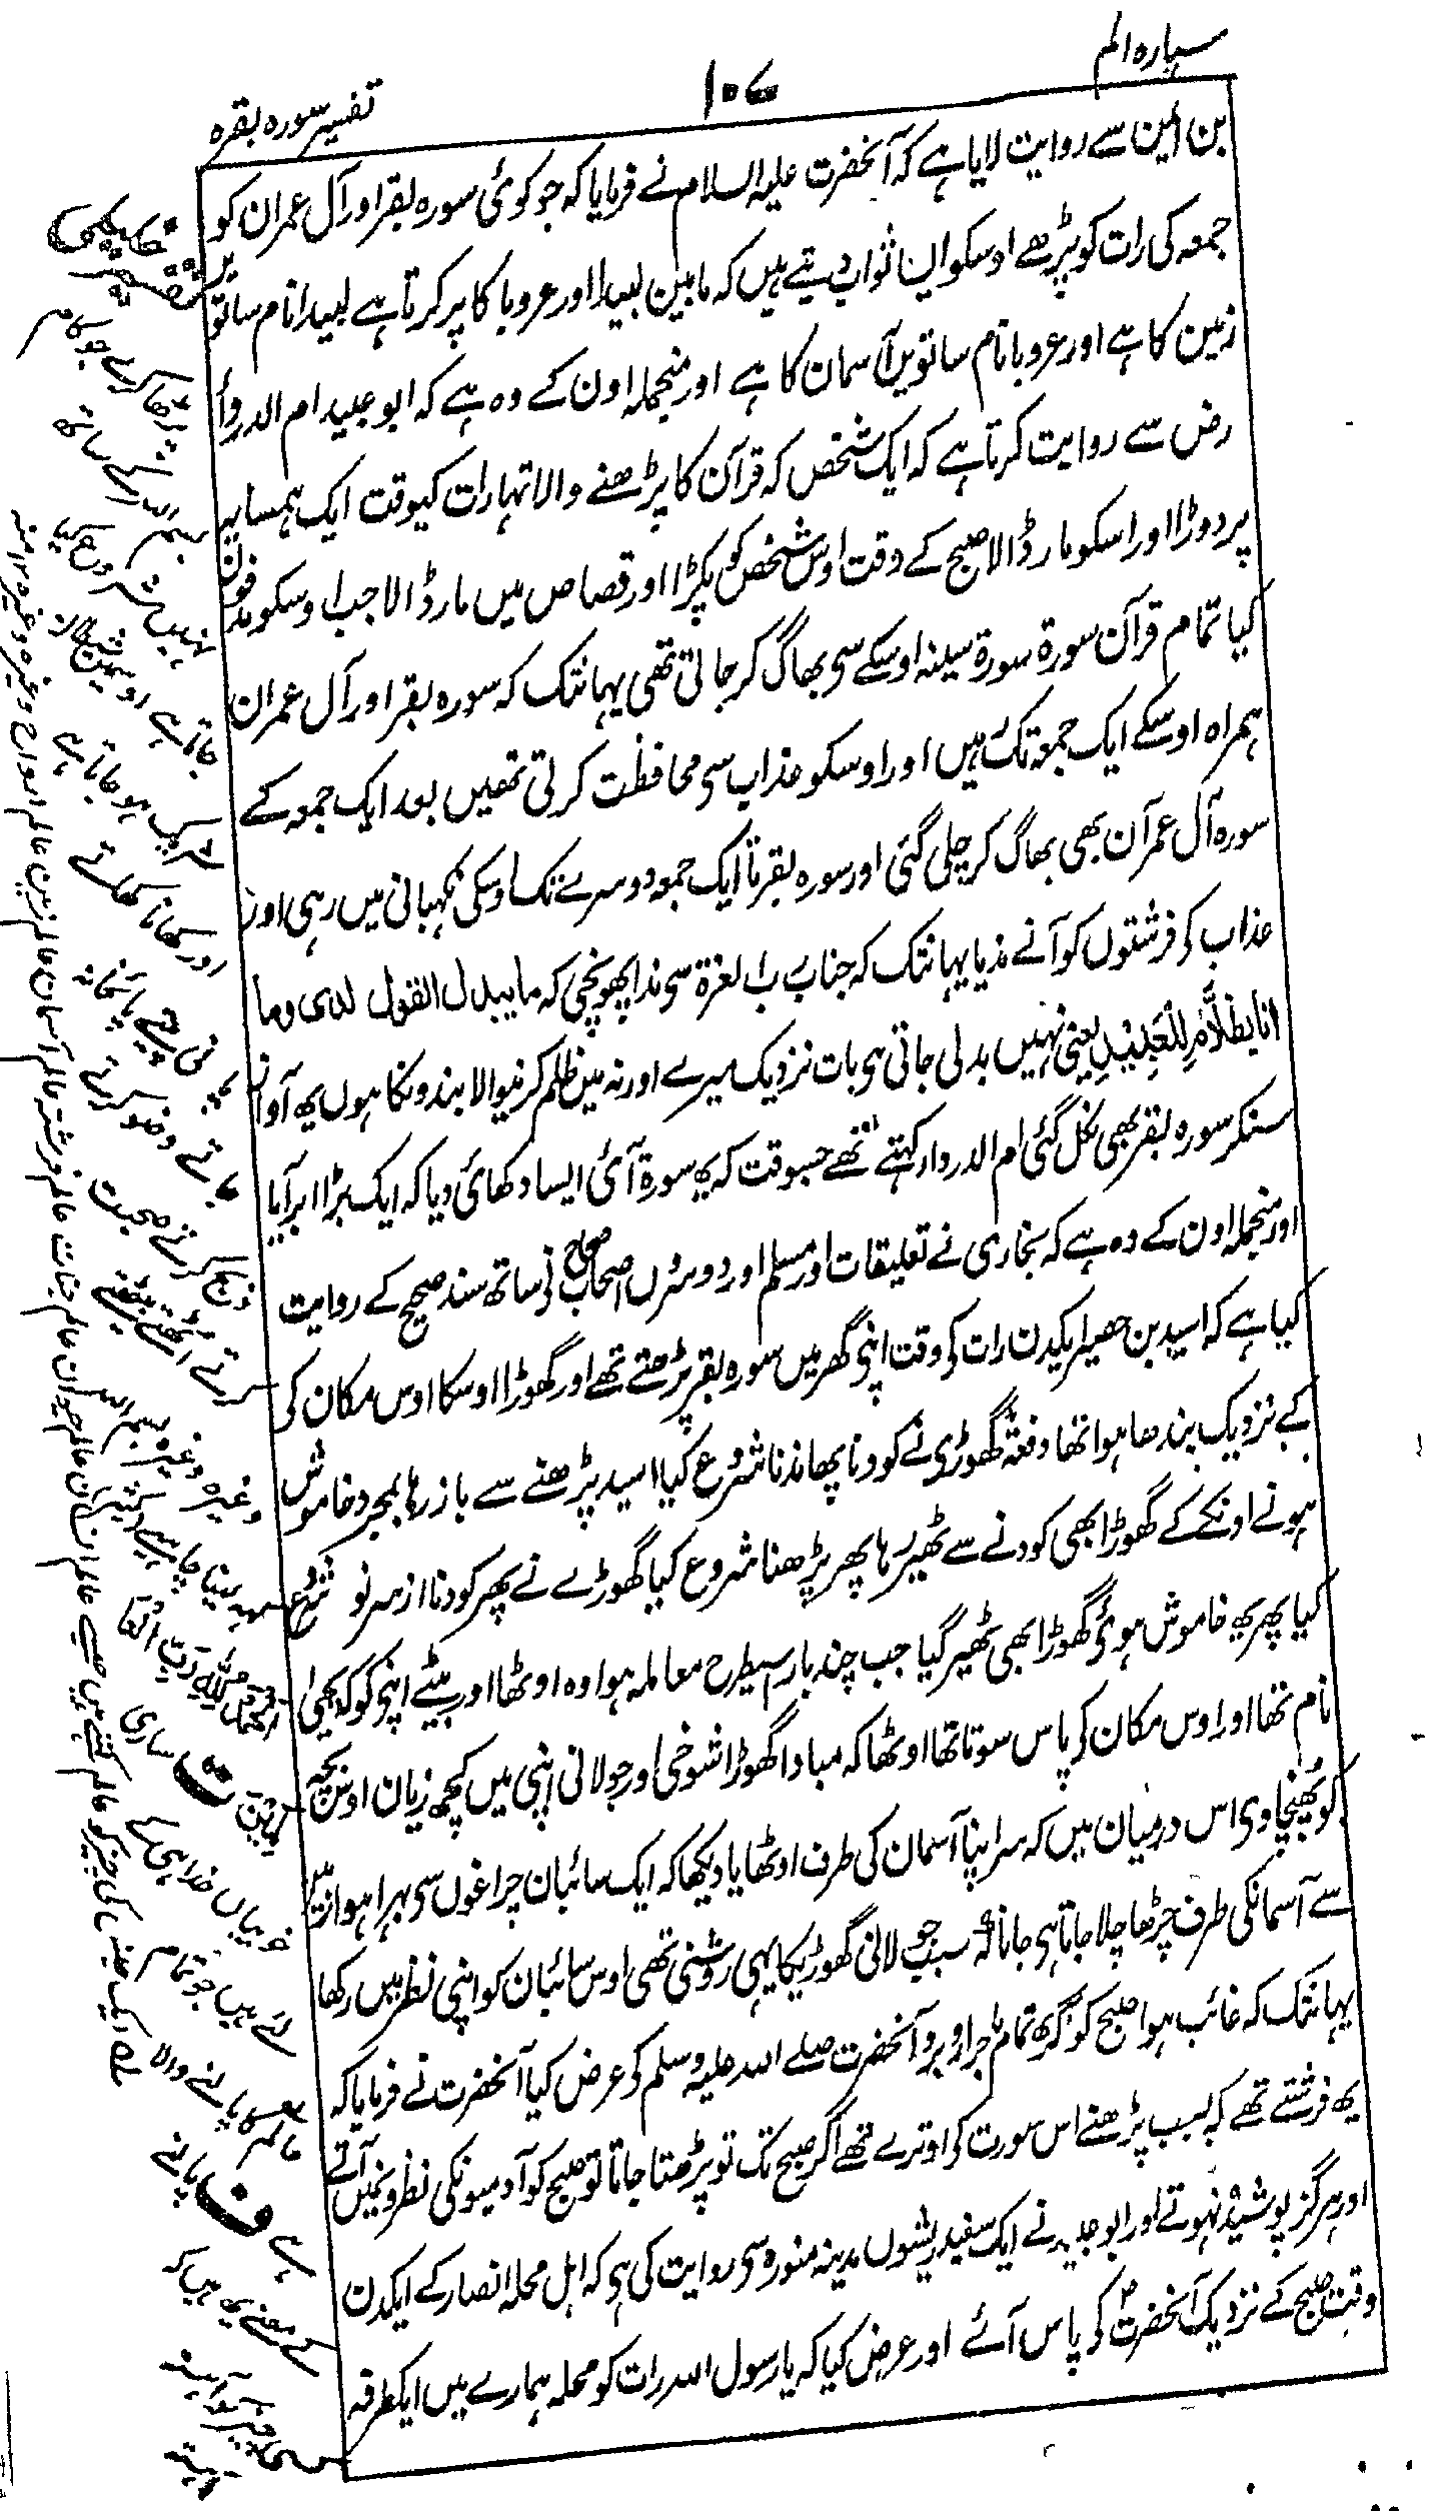 سیپارہ الم
۱۰۷
تفسیر سورہ بقرہ
بن ایمن سے روایت لایا ہے کہ آنحضرت علیہ السلام نے فرمایا کہ جو کوئی سورہ بقر اور آل عمران کو
جمعہ کی رات کو پڑھے اوسکو ایسا ثواب دیتے ہیں کہ مابین لبیدا اور عروبا کا پر کرتا ہے لبیدا نام ساتویں
زمین کا ہے اور عروبا نام ساتویں آسمان کا ہے اور منجملہ اون کے وہ ہے کہ ابو عبید ام الدرداء
رض سے روایت کرتا ہے کہ ایک شخص کہ قرآن کا پڑھنے والا تہا رات کیوقت ایک ہمسایہ
پر دوڑا اور اسکو مار ڈالا صبح کے وقت اوس شخص کو پکڑا اور قصاص میں مار ڈالا جب اوسکو مدفون
کیا تمام قرآن سورۃ سورۃ سینہ اوسکے سی بھاگ کر جاتی تھی یہانتک کہ سورہ بقر اور آل عمران
ہمراہ اوسکے ایک جمعہ تک رہیں اور اوسکو عذاب سی محافظت کرتی تھیں بعد ایک جمعہ کے
سورہ آل عمرآن بھی بھاگ کر چلی گئی اور سورہ بقر تا ایک جمعہ دوسرے تک اوسکی نگہبانی میں رہی اور
عذاب کی فرشتوں کو آنے ندیا یہانتک کہ جناب رب العزۃ سی ندا پھونچی کہ مایبدل القول لدی وما
انا بظلام للعبید یعنی نہیں بدلی جاتی ہی بات نزدیک میرے اور نہ میں ظلم کرنیوالا بندونکا ہوں یہ آواز
سنکر سورہ بقر بھی نکل گئی ام الدرداء کہتے تھے جسوقت کہ یہ سورۃ آئی ایسا دکھائی دیا کہ ایک بڑا ابر آیا
اور منجملہ اون کے وہ ہے کہ بخاری نے تعلیقات اور مسلم اور دوسروں اصحاب صحاح نی ساتھ سند صحیح کے روایت
کیا ہے کہ اسید بن حضیر ایکدن رات کی وقت اپنی گھر میں سورہ بقر پڑھتے تھے اور گھوڑا اوسکا اوس مکان کی
کے نزدیک بندھا ہوا تھا دفعۃً گھوڑی نے کودنا پھاندنا شروع کیا اسید پڑھنے سے باز رہا بمجرد خاموش
ہونے اونکے کے گھوڑا بھی کودنے سے ٹھیر رہا پھر پڑھنا شروع کیا گھوڑے نے پھر کودنا از سر نو شروع
کیا پھر یہ خاموش ہوئی گھوڑا بھی ٹھیر گیا جب چند بار اسیطرح معاملہ ہوا وہ اوٹھا اور بیٹے اپنی کو کہ یحییٰ
نام تھا اور اوس مکان کی پاس سوتا تھا اوٹھا کہ مبادا گھوڑا شوخی اور جولانی اپنی میں کچھ زیان اوس بچہ
کو پھنچا وی اس درمیان میں کہ سر اپنا آسمان کی طرف اوٹھایا دیکھا کہ ایک سائبان چراغوں سی بہرا ہوا زمین
سے آسمانکی طرف چڑھا چلا جاتا ہی جانا کہ سبب جولانی گھوڑیکا یہی روشنی تھی اوس سائبان کو اپنی نظر میں رکھا
یہانتک کہ غائب ہوا صبح کو اگر یہ تمام ماجرا روبرو آنحضرت صلے اللہ علیہ وسلم کی عرض کیا آنحضرت نے فرمایا کہ
یہ فرشتے تھے کہ بسبب پڑھنے اس سورت کی اوترے تھے اگر صبح تک تو پڑھتا جاتا تو صبح کو آدمیونکی نظروں میں آتے
اور ہرگز پوشیدہ نہوتے اور ابو عبید نے ایک سفید ریشوں مدینہ منورہ سی روایت کی ہی کہ اہل محلہ انصار کے ایکدن
وقت صبح کے نزدیک آنحضرت ؐ کی پاس آئے اور عرض کیا کہ یا رسول اللہ رات کو محلہ ہمارے میں ایکطرفہ
پڑھا کرے جو کام
بسم اللہ کے ساتھ
نہیں شروع کیا
جاتا ہے اوسمیں شیطان
شریک ہو جاتا ہے
اور کھانا کھاتے
پانی پیتے پائخانہ
جاتے وضو کرتے
ذبح کرتے صحبت
کرتے اٹھتے بیٹھتے
وغیرہ وغیرہ بسم اللہ
کہہ لینا چاہیے
الحمد للہ رب العا
لمین ت ساری
خوبیاں خدا ہی کے
لئے ہیں جو تمام
عالم کا پالنے والا
ہے ف پالنے
کے معنے یہ ہیں کہ